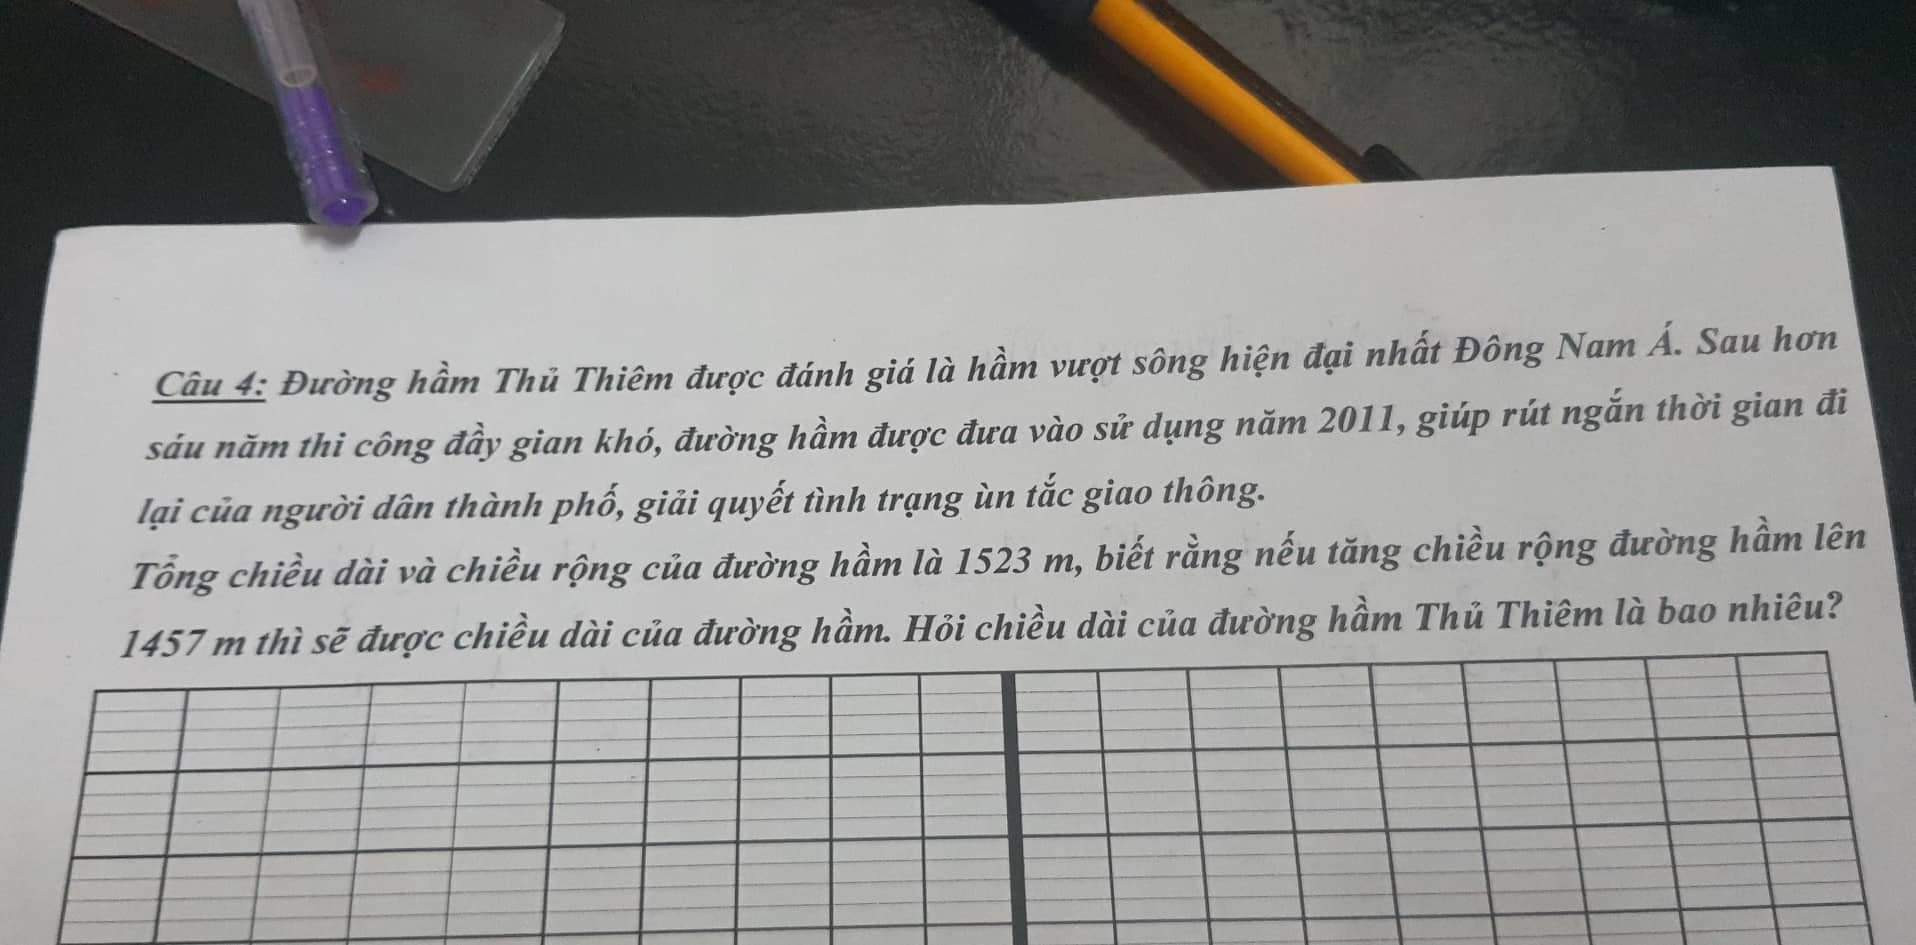 Câu 4: Đường hầm Thủ Thiêm được đánh giá là hầm vượt sông hiện đại nhất Đông Nam Á. Sau hơn
sáu năm thi công đầy gian khó, đường hầm được đưa vào sử dụng năm 2011, giúp rút ngắn thời gian đi
lại của người dân thành phố, giải quyết tình trạng ùn tắc giao thông.
Tổng chiều dài và chiều rộng của đường hầm là 1523 m, biết rằng nếu tăng chiều rộng đường hầm lên
1457 m thì sẽ được chiều dài của đường hầm. Hỏi chiều dài của đường hầm Thủ Thiêm là bao nhiêu?